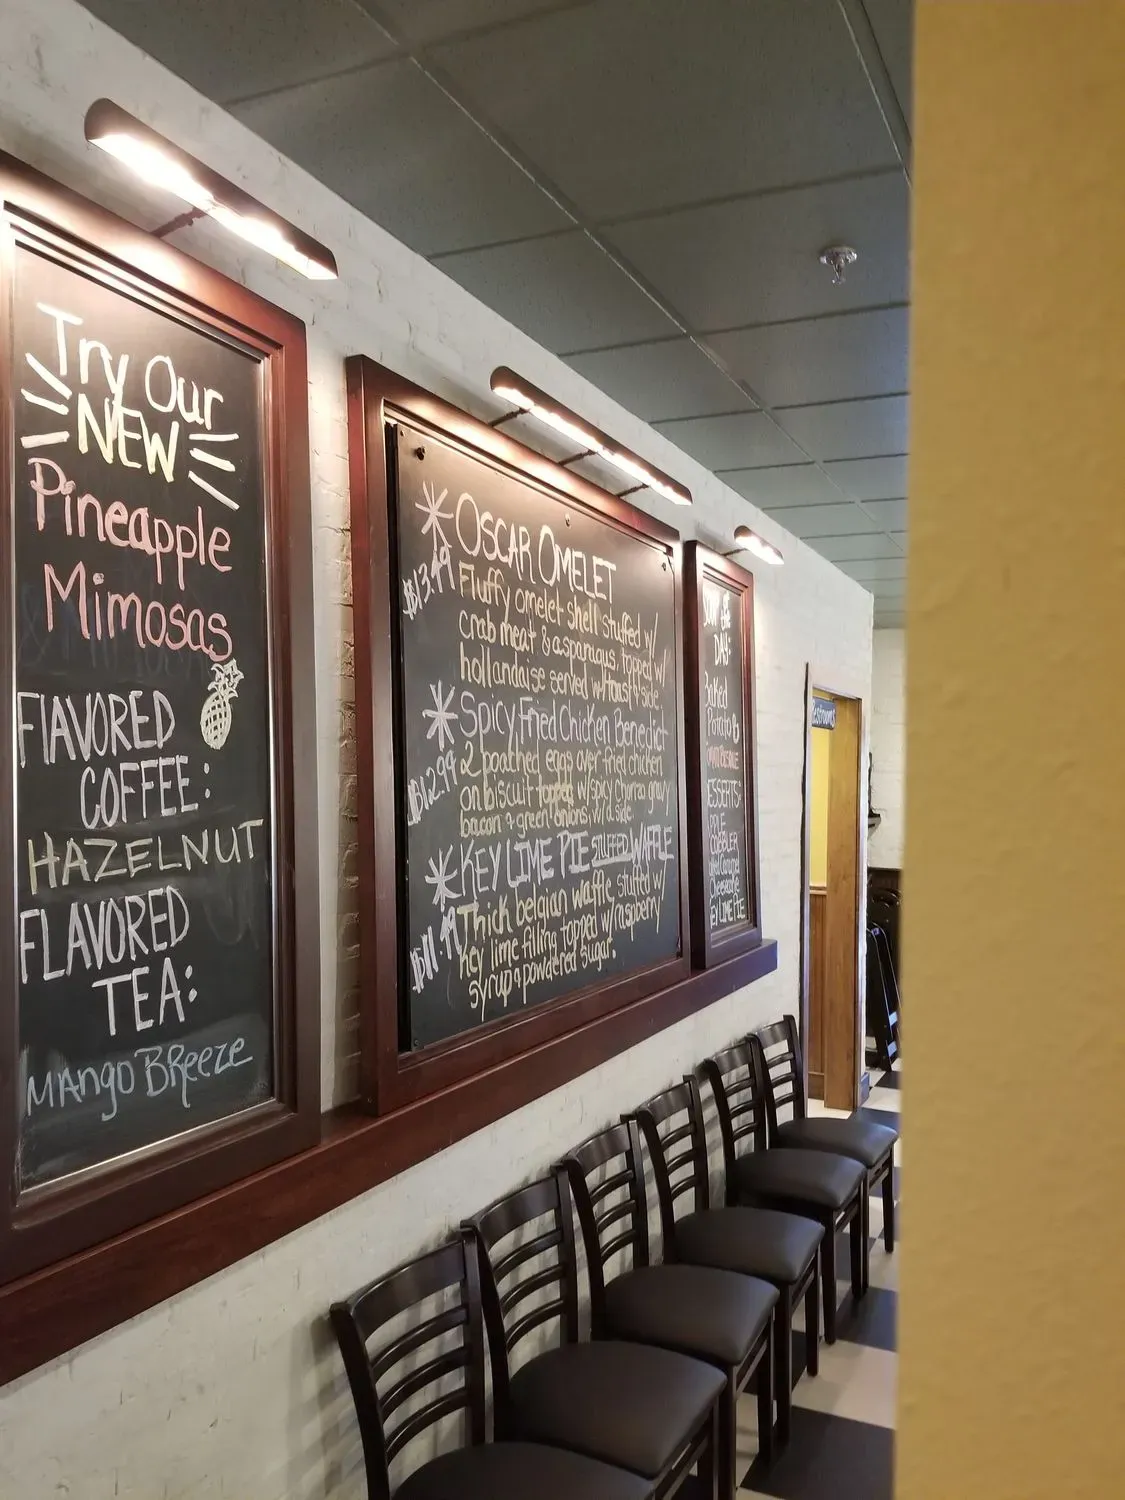 Try Our
NEW
Pineapple
Mimosas
FLAVORED
COFFEE:
HAZELNUT
FLAVORED
TEA:
MANgO BReeze
OSCAR OMELET
$13.49
Fluffy omelet shell stuffed w/
crab meat & asparagus, topped w/
hollandaise served w/toast & side.
Spicy Fried Chicken Benedict
$12.99
2 poached eggs over fried chicken
on biscuit topped w/spicy chorizo gravy
bacon & green onions, w/a side.
KEY LIME PIE STUFFED WAFFLE
$11.49
Thick belgian waffle, stuffed w/
key lime filling topped w/raspberry
syrup & powdered sugar.
of the
DAY:
Baked
Potato &
DESSERTS:
APPLE
COBBLER
Caramel
Cheesecake
KEY LIME PIE
Restrooms